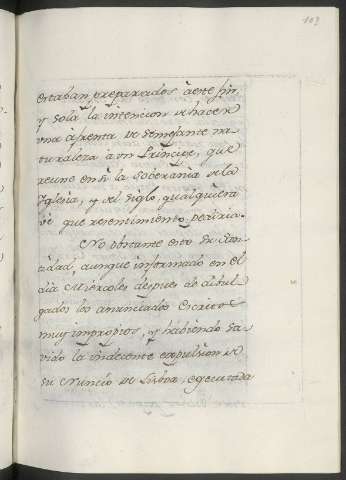 103
estaban preparados à este fin,
y sola la intencion de hacer
una afrenta de semejante na-
turaleza à un Principe, que
reune en sì la soberania de la
Iglesia, y del siglo, qualquiera
vè que resentimiento pediria.
No obstante esto Su San-
tidad, aunque informado en el
dia Miercoles despues de dibul-
gados los anunciados Escritos
muy improprios, y habiendo sa-
vido la indecente expulsion de
su Nuncio de Lisboa, egecutada